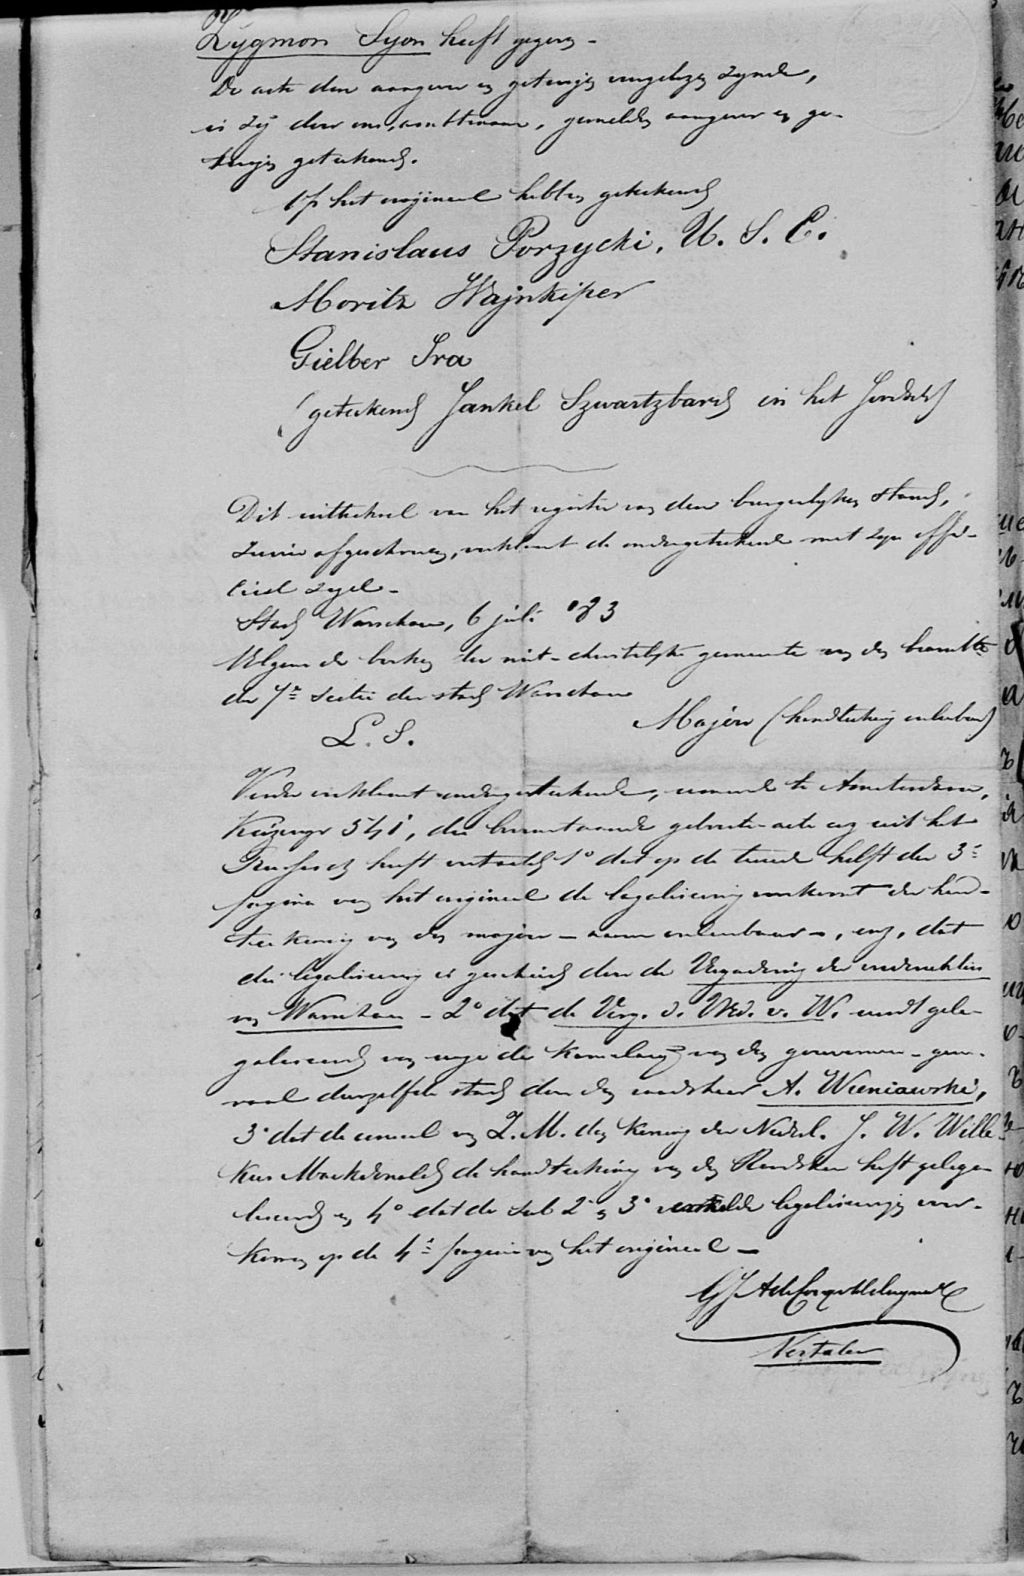 Zygmon Lyon heeft gegeven -
De acte den aangever en getuigen voorgelezen zynde,
is zy door ons, ambtenaar, gemelden aangever en ge-
tuigen geteekend.
Op het origineel hebben geteekend
Stanislaus Porzycki. U. S. C.
Moritz Wajnkiper
Gielber Sra
(geteekend Jankel Szwartzbard in het Joodsch)
Dit uittreksel van het register van den burgerlyken stand,
afgeschreven, verklaart de ondergeteekende met zyn offi-
cieel zegel -
Stad Warschau, 6 juli 83
Volgens de boeken der niet-christelyke gemeente van den beambte
der 7e sectie der stad Warschau
L. S. Majer (handteekening onleesbaar)
Verder verklaart ondergeteekende, wonende te Amsterdam,
Keizersgr 541, die bovenstaande geboorte-acte uit het
Russisch heeft vertaald 1° dat op de tweede helft der 3e
pagina van het origineel de legaliseering voorkomt der hand-
teekening van den majoor - naam onleesbaar -, enz, dat
die legaliseering is geschied door de Vergadering der
van Warschau - 2° dat de Verg. d. v. W. wordt gele-
galiseerd van wege de Kanselary van den gouverneur-gene-
raal derzelfde stad door den raadsheer A. Wieniawski,
3° dat de consul van Z. M. den Koning der Nederl. J. W. Wille-
kes Mackdonald de handteekening van den Raadsheer heeft gelega-
liseerd en 4° dat de sub 2° en 3° vermelde legaliseeringen voor-
komen op de 4e pagina van het origineel -
Vertaler